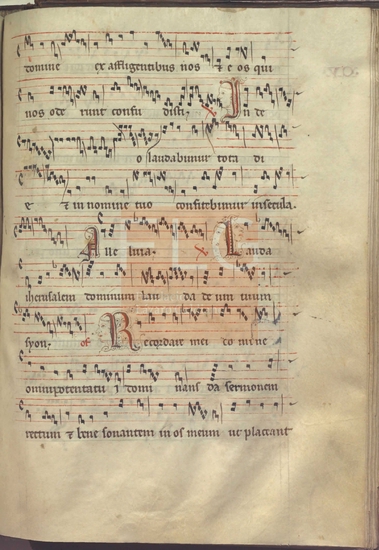 domine ex affligentibus nos & eos qui
nos ode runt confu disti. In de
o laudabimur tota di
e & in nomine tuo confitebimur in secula.
Alle luia. Lauda
iherusalem dominum lau da deum tuum
syon. of Recordare mei domine
omni potentatu domi nans da sermonem
rectum & bene sonantem in os meum ut placeant